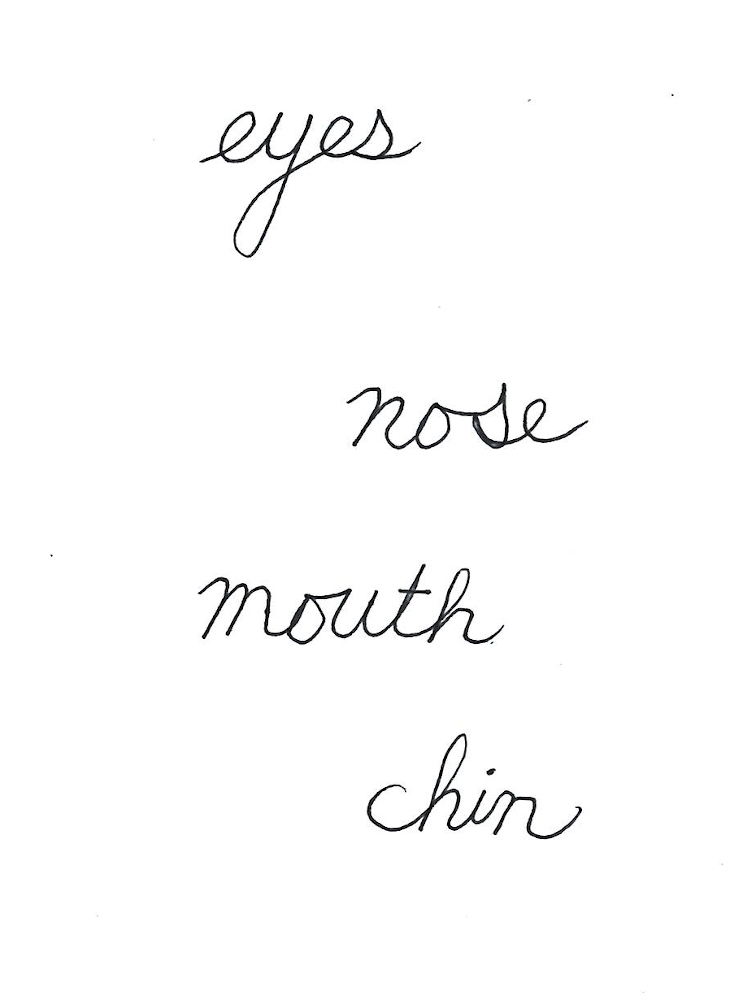 eyes
nose
mouth
chin